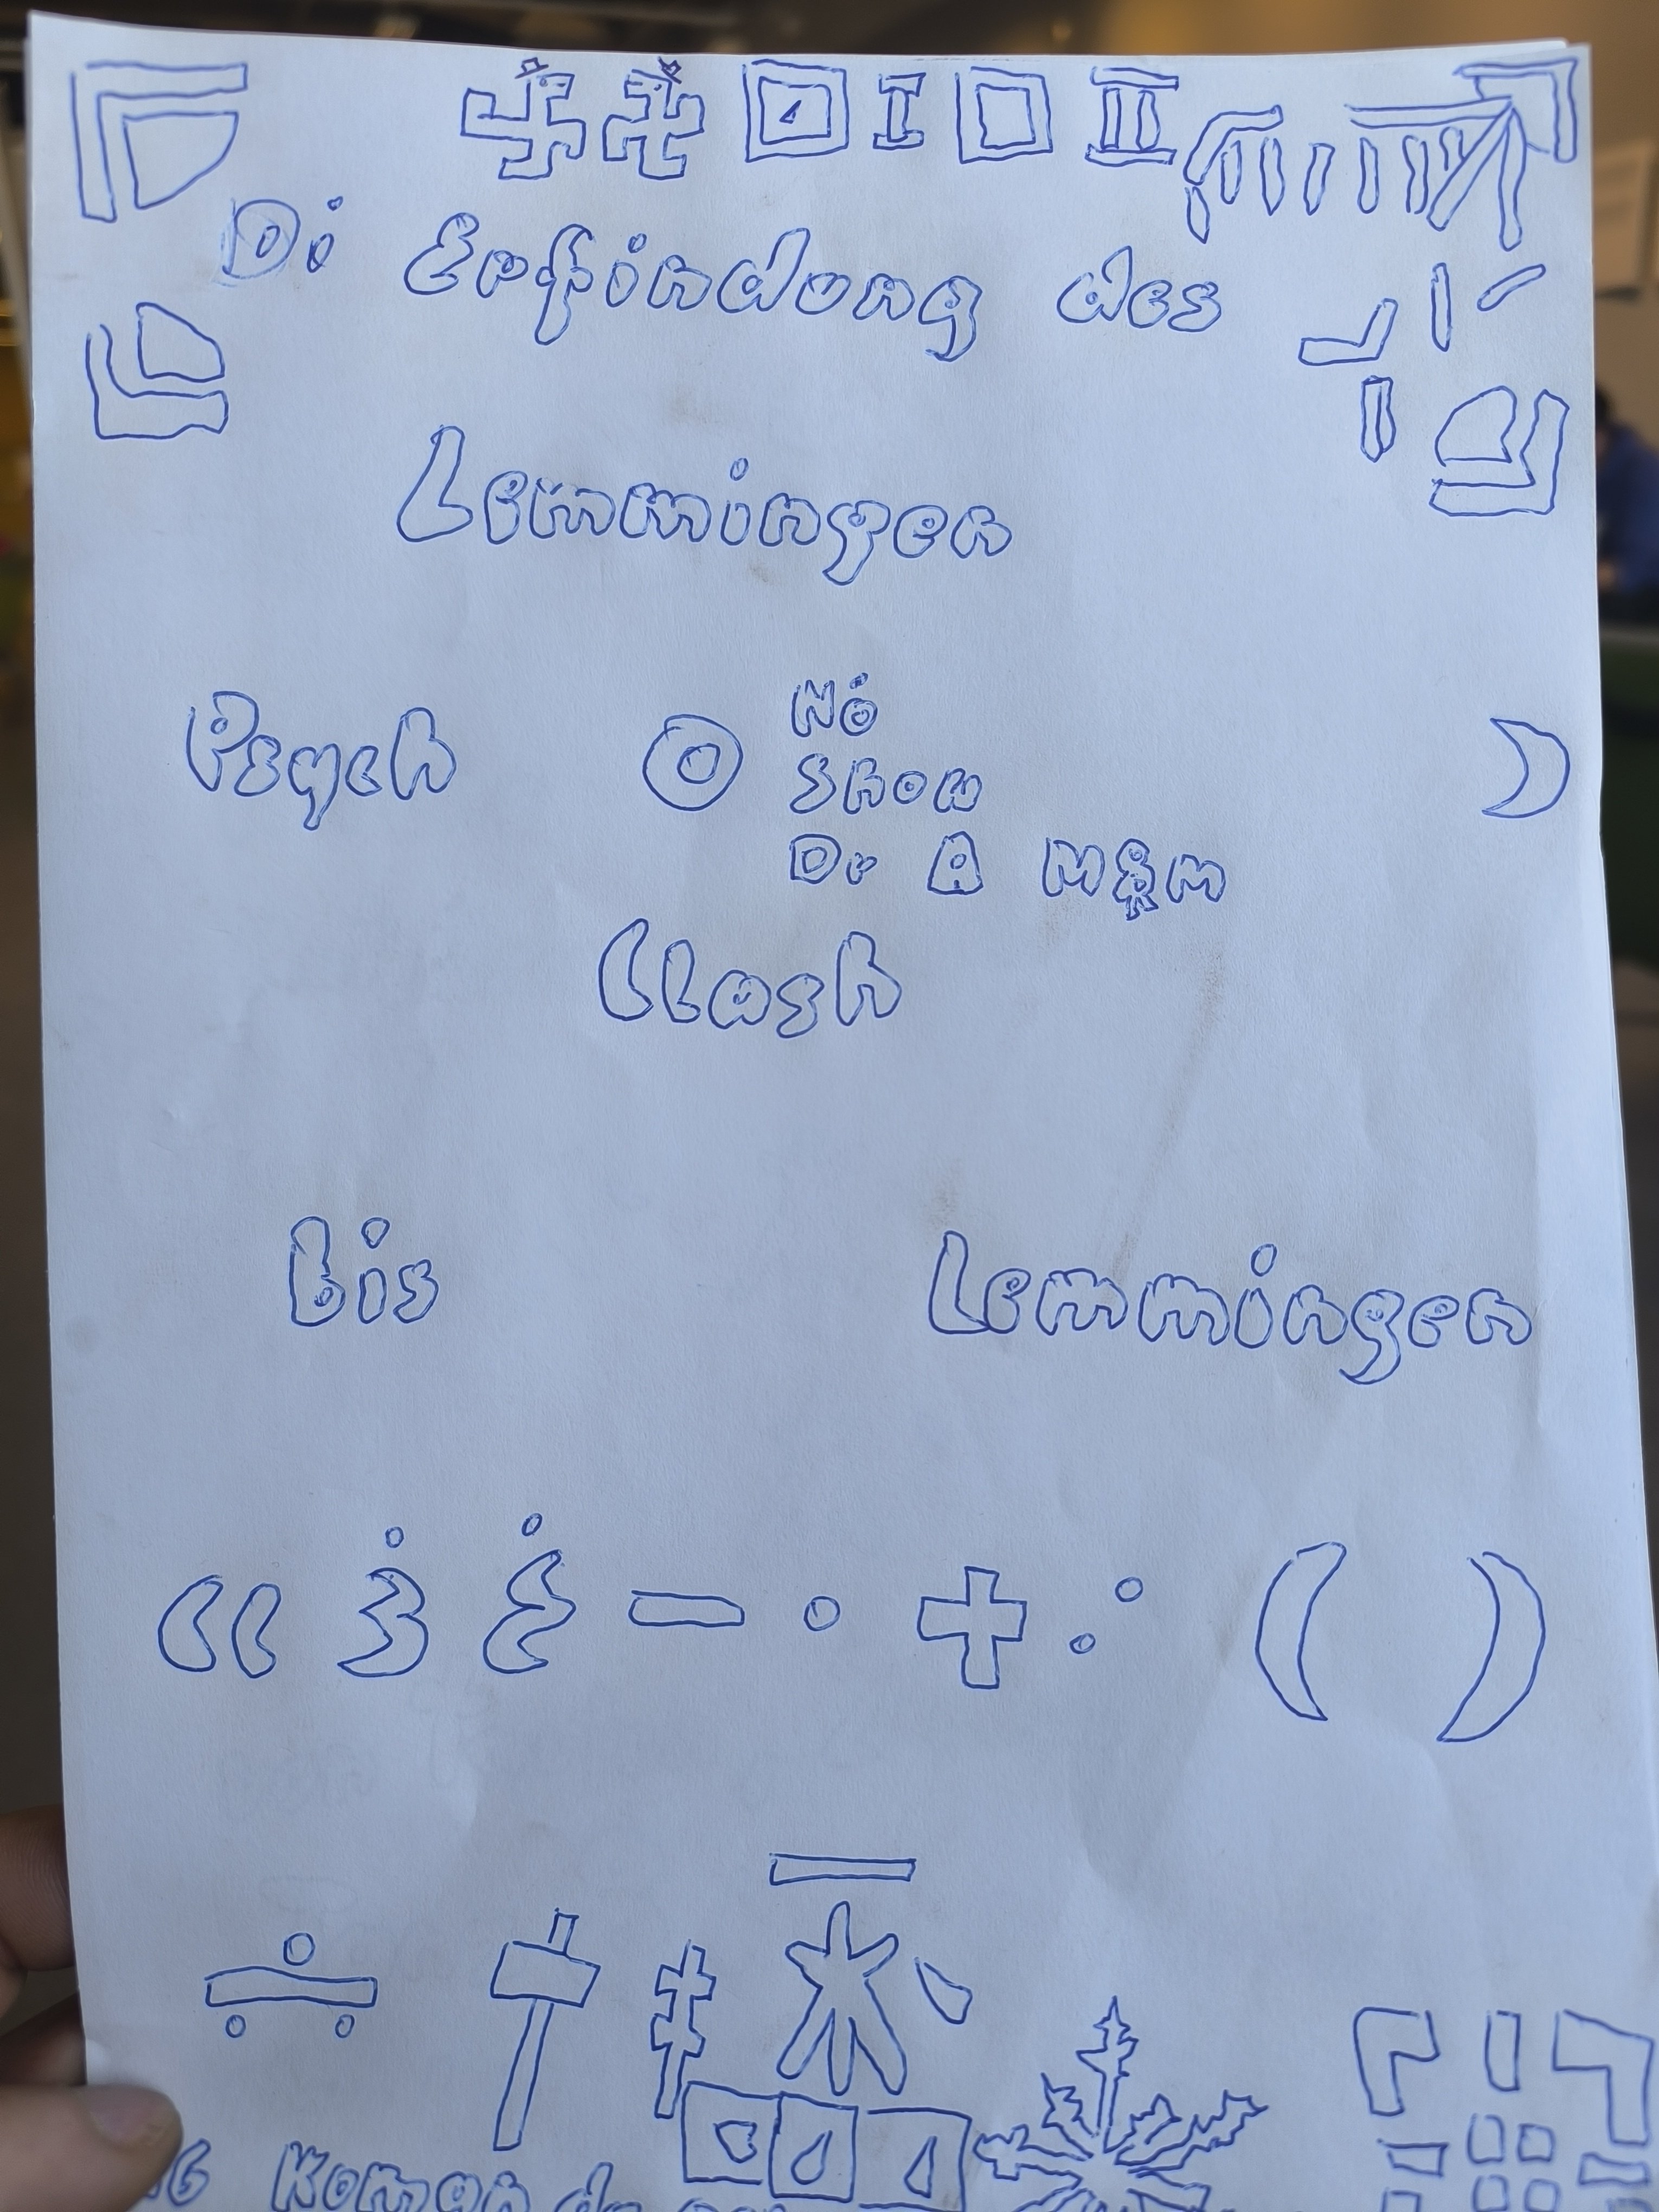 Di Erfindung des
Lemmingen
Psych
No
Show
Dr A M&M
Clash
Bis Lemmingen
- · + : ( )
÷